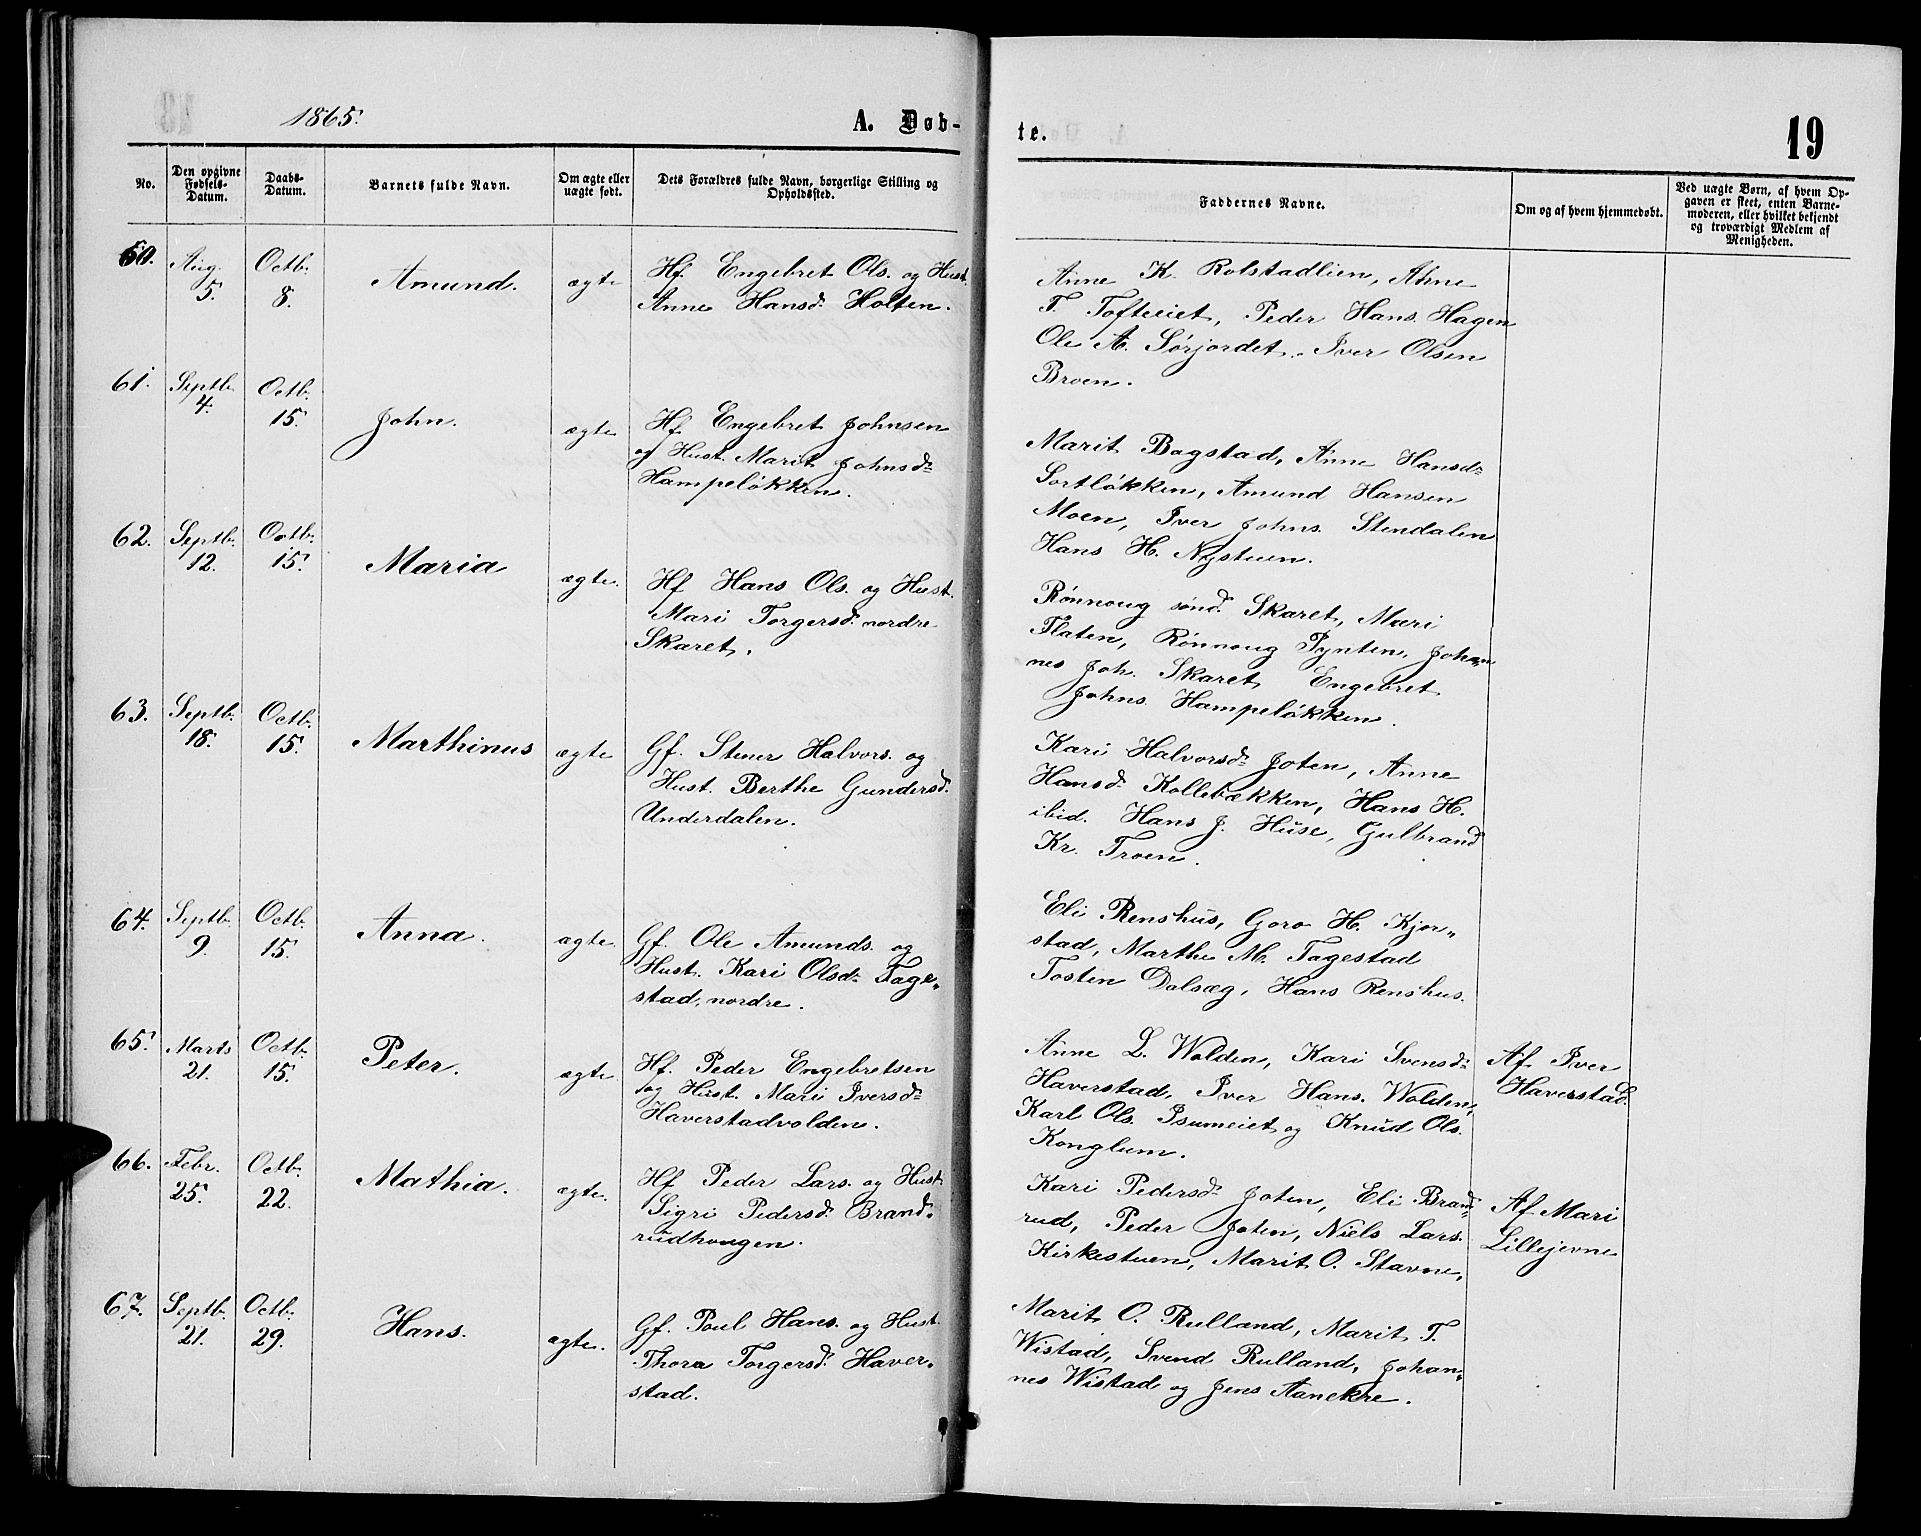 1865.
A. Døb-
te.
19
No.
Den opgivne
Fødsels-
Datum.
Daabs-
Datum.
Barnets fulde Navn.
Om ægte eller
uægte født.
Dets Forældres fulde Navn, borgerlige Stilling og
Opholdssted.
Faddernes Navne.
Om og af hvem hjemmedøbt.
Ved uægte Børn, af hvem Op-
gaven er skeet, enten Barne-
moderen, eller hvilket bekjendt
og troværdigt Medlem af
Menigheden.
60.
Aug.
5.
Octb.
8.
Amund.
ægte
Hf Engebret Ols. og Hust.
Anne Hansd. Holten.
Anne K. Rolstadlien, Anne
T. Tofteeiet, Peder Hans. Hagen
Ole A. Sørjordet. Iver Olsen
Broen.
61.
Septb.
4.
Octb.
15.
John.
ægte
Hf Engebret Johnsen
og Hust. Marit Johnsd.
Hampeløkken.
Marit Bagstad, Anne Hansd.
Sortløkken, Amund Hansen
Moen, Iver Johns. Stendalen
Hans H. Nystuen.
62.
Septb.
12.
Octb.
15.
Maria
ægte.
Hf Hans Ols. og Hust.
Mari Torgersd. nordre
Skaret.
Rønnoug sønd. Skaret, Mari
Flaten, Rønnoug Pynten, Johan
nes Joh. Skaret Engebret
Johns. Hampeløkken.
63.
Septb.
18.
Octb.
15.
Marthinus
ægte
Gf. Stener Halvors. og
Hust. Berthe Gundersd.
Underdalen.
Kari Halvorsd. Joten, Anne
Hansd. Kollebækken, Hans H.
ibid. Hans J. Huse, Gulbrand
Kr. Troen.
64.
Septb.
9.
Octb.
15.
Anna.
ægte.
Gf. Ole Amunds. og
Hust. Kari Olsd. Tage„
stad, nordre.
Eli Renshus, Goro H. Kjor„
stad, Marthe M. Tagestad
Tosten Dalsæg, Hans Renshus.
65.
Marts
21.
Octb.
15.
Peter.
ægte.
Hf. Peder Engebretsen
og Hust. Mari Iversd.
Haverstadvolden.
Anne L. Wolden, Kari Svensd.
Haverstad, Iver Hans. Wolden,
Karl Ols. Isumeiet og Knud Ols.
Konglum.
Af Iver
Haverstad.
66.
Febr.
25.
Octb.
22.
Mathia.
ægte.
Hf Peder Lars. og Hust.
Sigri Pedersd. Brand„
rudhougen.
Kari Pedersd. Joten, Eli Brand„
rud, Peder Joten, Niels Lars.
Kirkestuen, Marit O. Stavne,
Af Mari
Lillejevne
67.
Septb.
21.
Octb.
29.
Hans.
ægte.
Gf. Poul Hans. og Hust.
Thora Torgersd. Haver„
stad.
Marit O. Rulland, Marit T.
Wistad, Svend Rulland, Johan„
nes Wistad og Jens Aanekre.